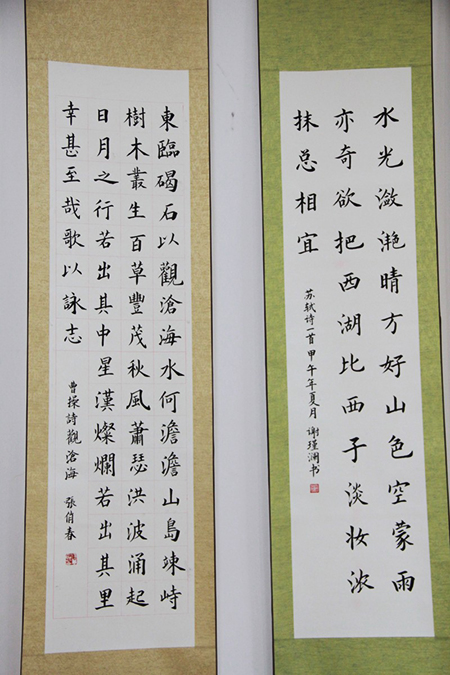 水光潋滟晴方好山色空蒙雨
亦奇欲把西湖比西子淡妆浓
抹总相宜
苏轼诗一首甲午年夏月谢瑾澜书
東臨碣石以觀滄海水何澹澹山島竦峙
樹木叢生百草豐茂秋風蕭瑟洪波涌起
日月之行若出其中星漢燦爛若出其里
幸甚至哉歌以詠志
曹操詩觀滄海 張俏春